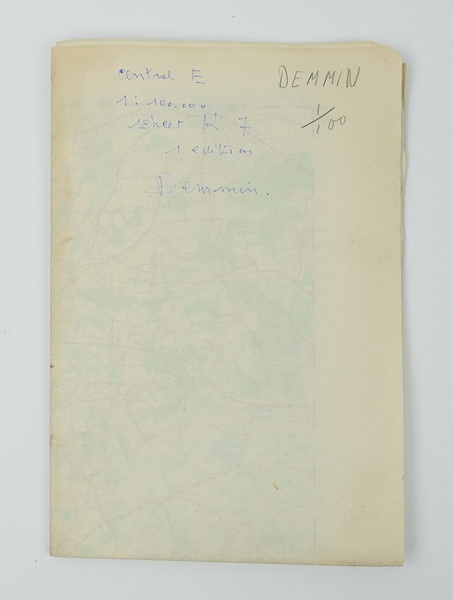 Central E
DEMMIN
1:100.000
1/100
sheet K 7
1 edition
Demmin.